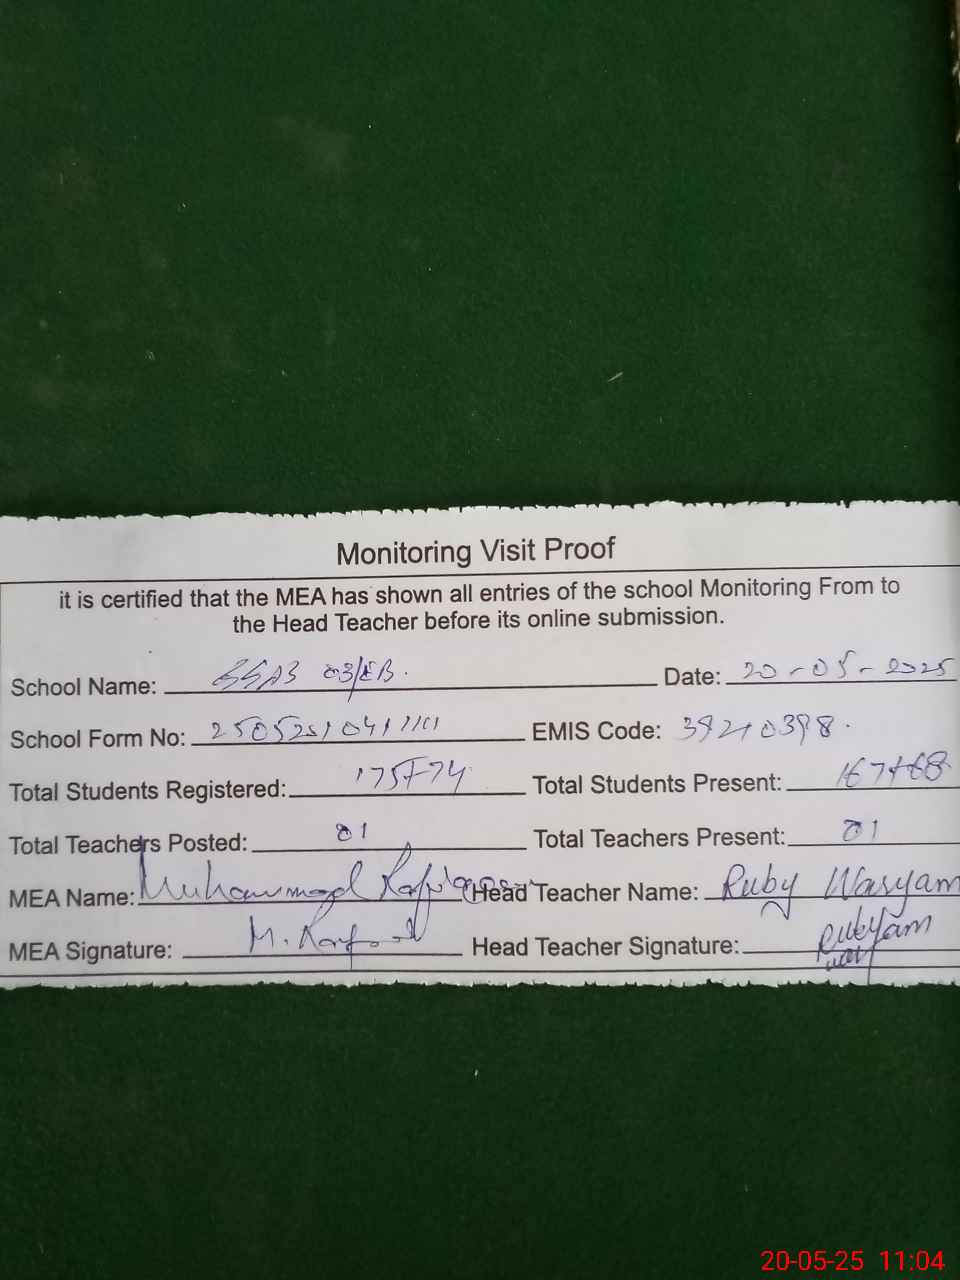 Monitoring Visit Proof
it is certified that the MEA has shown all entries of the school Monitoring From to
the Head Teacher before its online submission.
School Name: 03/EB. Date: 20-05-2025
School Form No: EMIS Code:
Total Students Registered: 175+74 Total Students Present: 167+68
Total Teachers Posted: 01 Total Teachers Present: 01
MEA Name: Muhammad Head Teacher Name: Ruby Wasyam
MEA Signature: Head Teacher Signature:
20-05-25 11:04